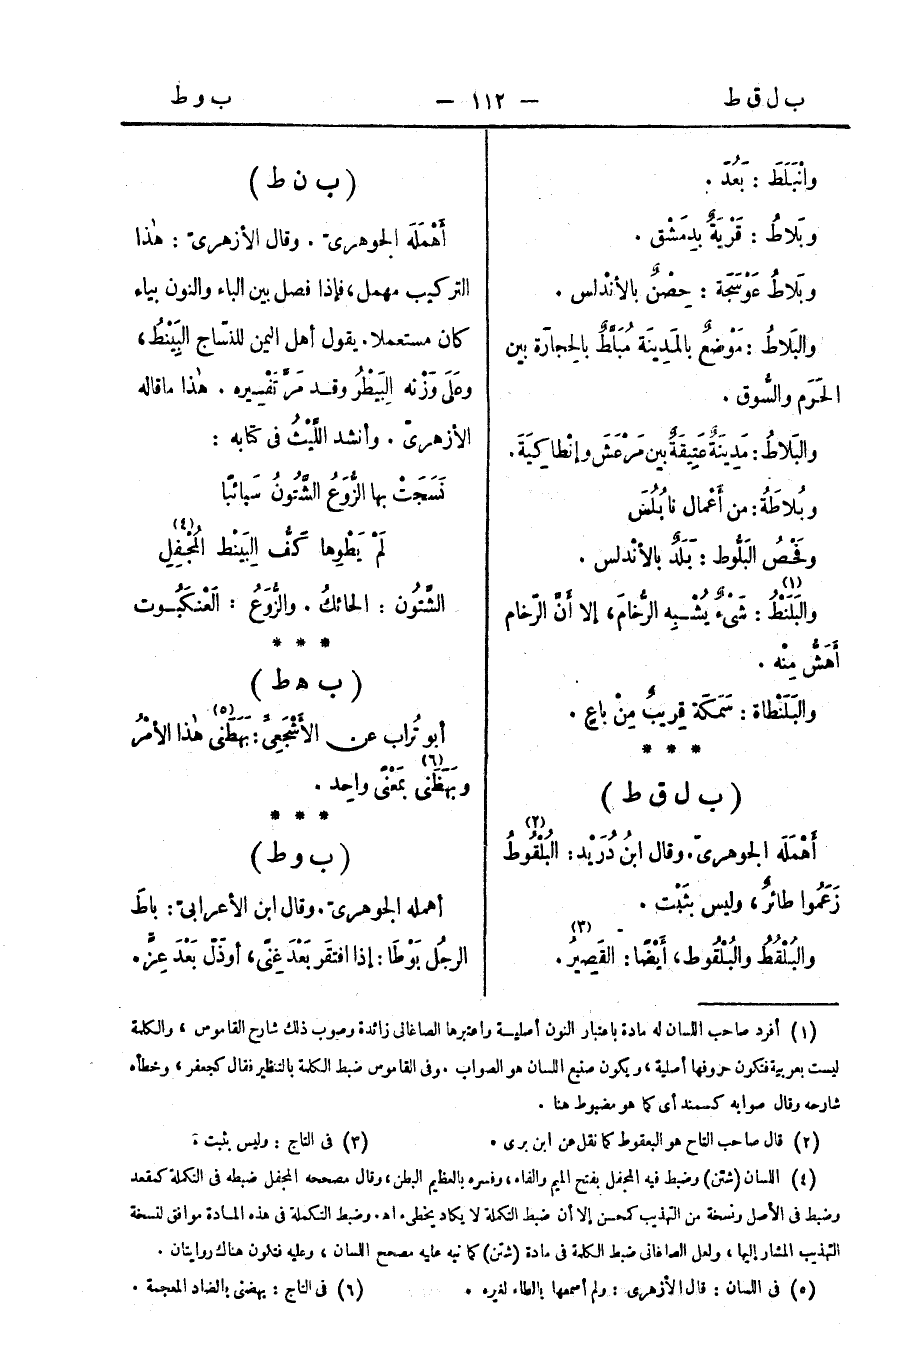 ب ل ق ط — ١١٢ — ب و ط
وانْبَلَطَ : بَعُدَ .
وبَلَاطُ : قَرْيَةٌ بِدِمَشْق .
وبَلَاطُ عَوْسَجَة : حِصْنٌ بالأَنْدلس .
والبَلَاطُ : مَوْضِعٌ بالمَدِينَة مُبَلَّطٌ بالحِجارَة بين
الحَرَم والسُّوق .
والبَلَاطُ : مَدِينَةٌ عَتِيقَةٌ بين مَرْعَش وإنْطاكِيَةَ .
وبُلَاطَةُ : من أَعْمال نابُلُسَ
وفَحْصُ البَلُّوط : بَلَدٌ بالأَنْدلس .
والبَلَنْطُ (١) : شَىْءٌ يُشْـبِه الرُّخامَ ، إلا أَنَّ الرّخام
أَهَشُّ مِنْه .
والبَلَنْطاة : سَمَكَة قَرِيبٌ مِنْ باعٍ .
* * *
( ب ل ق ط )
أَهْمَلَه الجوهرىّ . وقال ابنُ دُرَيْد : البُلْقُوطُ (٢)
زَعَمُوا طائرٌ ، وليس بثَبْت .
والبُلْقُطُ والبُلْقُوط (٣) ، أَيْضًا : القَصِيرُ .
( ب ن ط )
أَهْمَلَه الجوهرىّ . وقال الأزهرىّ : هٰذا
التركيب مهمل ، فإذا فصل بين الباء والنون بياء
كان مستعملا . يقول أهل اليمن للنسّاج البِيَنْطُ ،
وعَلَى وَزْنه البِيَطْرُ وقـد مَرَّ تَفْسِيره . هٰذا ماقاله
الأزهرىّ . وأنشد اللَّيْثُ فى كتابه :
نَسَجَتْ بها الزُّوَعُ الشَّتُونُ سَبائبًا
لَمْ يَطْوِها كَفُّ البِيَنْط المُجْفِلِ (٤)
الشَّتُون : الحائكُ . والزُّوَعُ : العَنْكَبُـوت
* * *
( ب ه ط )
أبو تُراب عن الأَشْجَعِىِّ : بَهَطَنى (٥) هٰذا الأمْرُ
وبَهَظَنى (٦) بمَعْنًى واحِد .
* * *
( ب و ط )
أهمله الجوهرىّ . وقال ابن الأعرابىّ : باطَ
الرجُل بَوْطًا : إذا افتقَر بَعْدَ غِنًى ، أوذَلّ بَعْدَ عِزٍّ .
(١) أفرد صاحب اللسان له مادة باعتبار النون أصليـة واعتبرها الصاغانى زائدة وصوب ذلك شارح القاموس ، والكلمة
ليست بعربية فتكون حروفها أصلية ، ويكون صنيع اللسان هو الصواب . وفى القاموس ضبط الكلمة بالتنظير فقال كجعفر ، وخطأه
شارحه وقال صوابه كسمند أى كما هو مضبوط هنا .
(٢) قال صاحب التاج هو البعقوط كما نقل عن ابن برى . (٣) فى التاج : وليس بثبت ة
(٤) اللسان (شتن) وضبط فيه المجفل بفتح الميم والفاء ، وفسره بالعظيم البطن ، وقال مصححه المجفل ضبطه فى التكملة كمقعد
وضبط فى الأصل ونسخة من التهذيب كمحسن إلا أن ضبط التكملة لا يكاد يخطىء اه . وضبط التكملة فى هذه المـادة موافق لنسخة
التهذيب المشار إليها ، ولعل الصاغانى ضبط الكلمة فى مادة (شتن) كما نبه عليه مصحح اللسان ، وعليه فتكون هناك روايتان .
(٥) فى اللسان : قال الأزهرى : ولم أسمعها بالطاء لغيره . (٦) فى التاج : بهضنى بالضاد المعجمة .